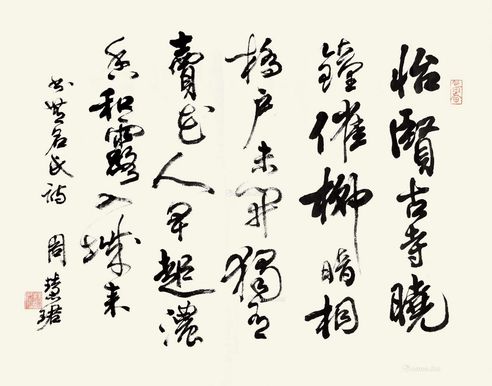 怡賢古寺曉
鐘催柳暗相
橋户未開獨有
賣花人早起濃
香和露入城来
书無名氏詩 周慧珺